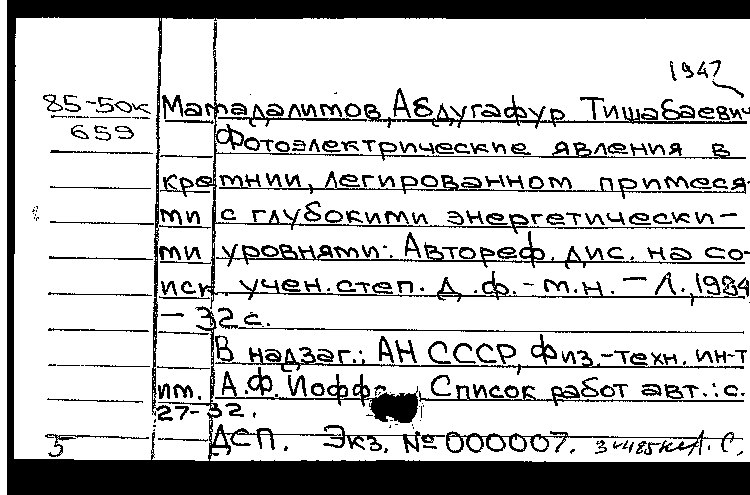 1947
85-50к Мамадалимов, Абдугафур Тишабаевич
659
Фотоэлектрические явления в
кремнии, легированном примеся-
ми с глубокими энергетически-
ми уровнями: Автореф. дис. на со-
иск. учен. степ. д.ф.-м.н. - Л., 1984
- 32 с.
В надзаг.: АН СССР, Физ.-техн. ин-т
им. А.Ф. Иоффе. Список работ авт.: с.
27-32.
ДСП. Экз. № 000007.
5